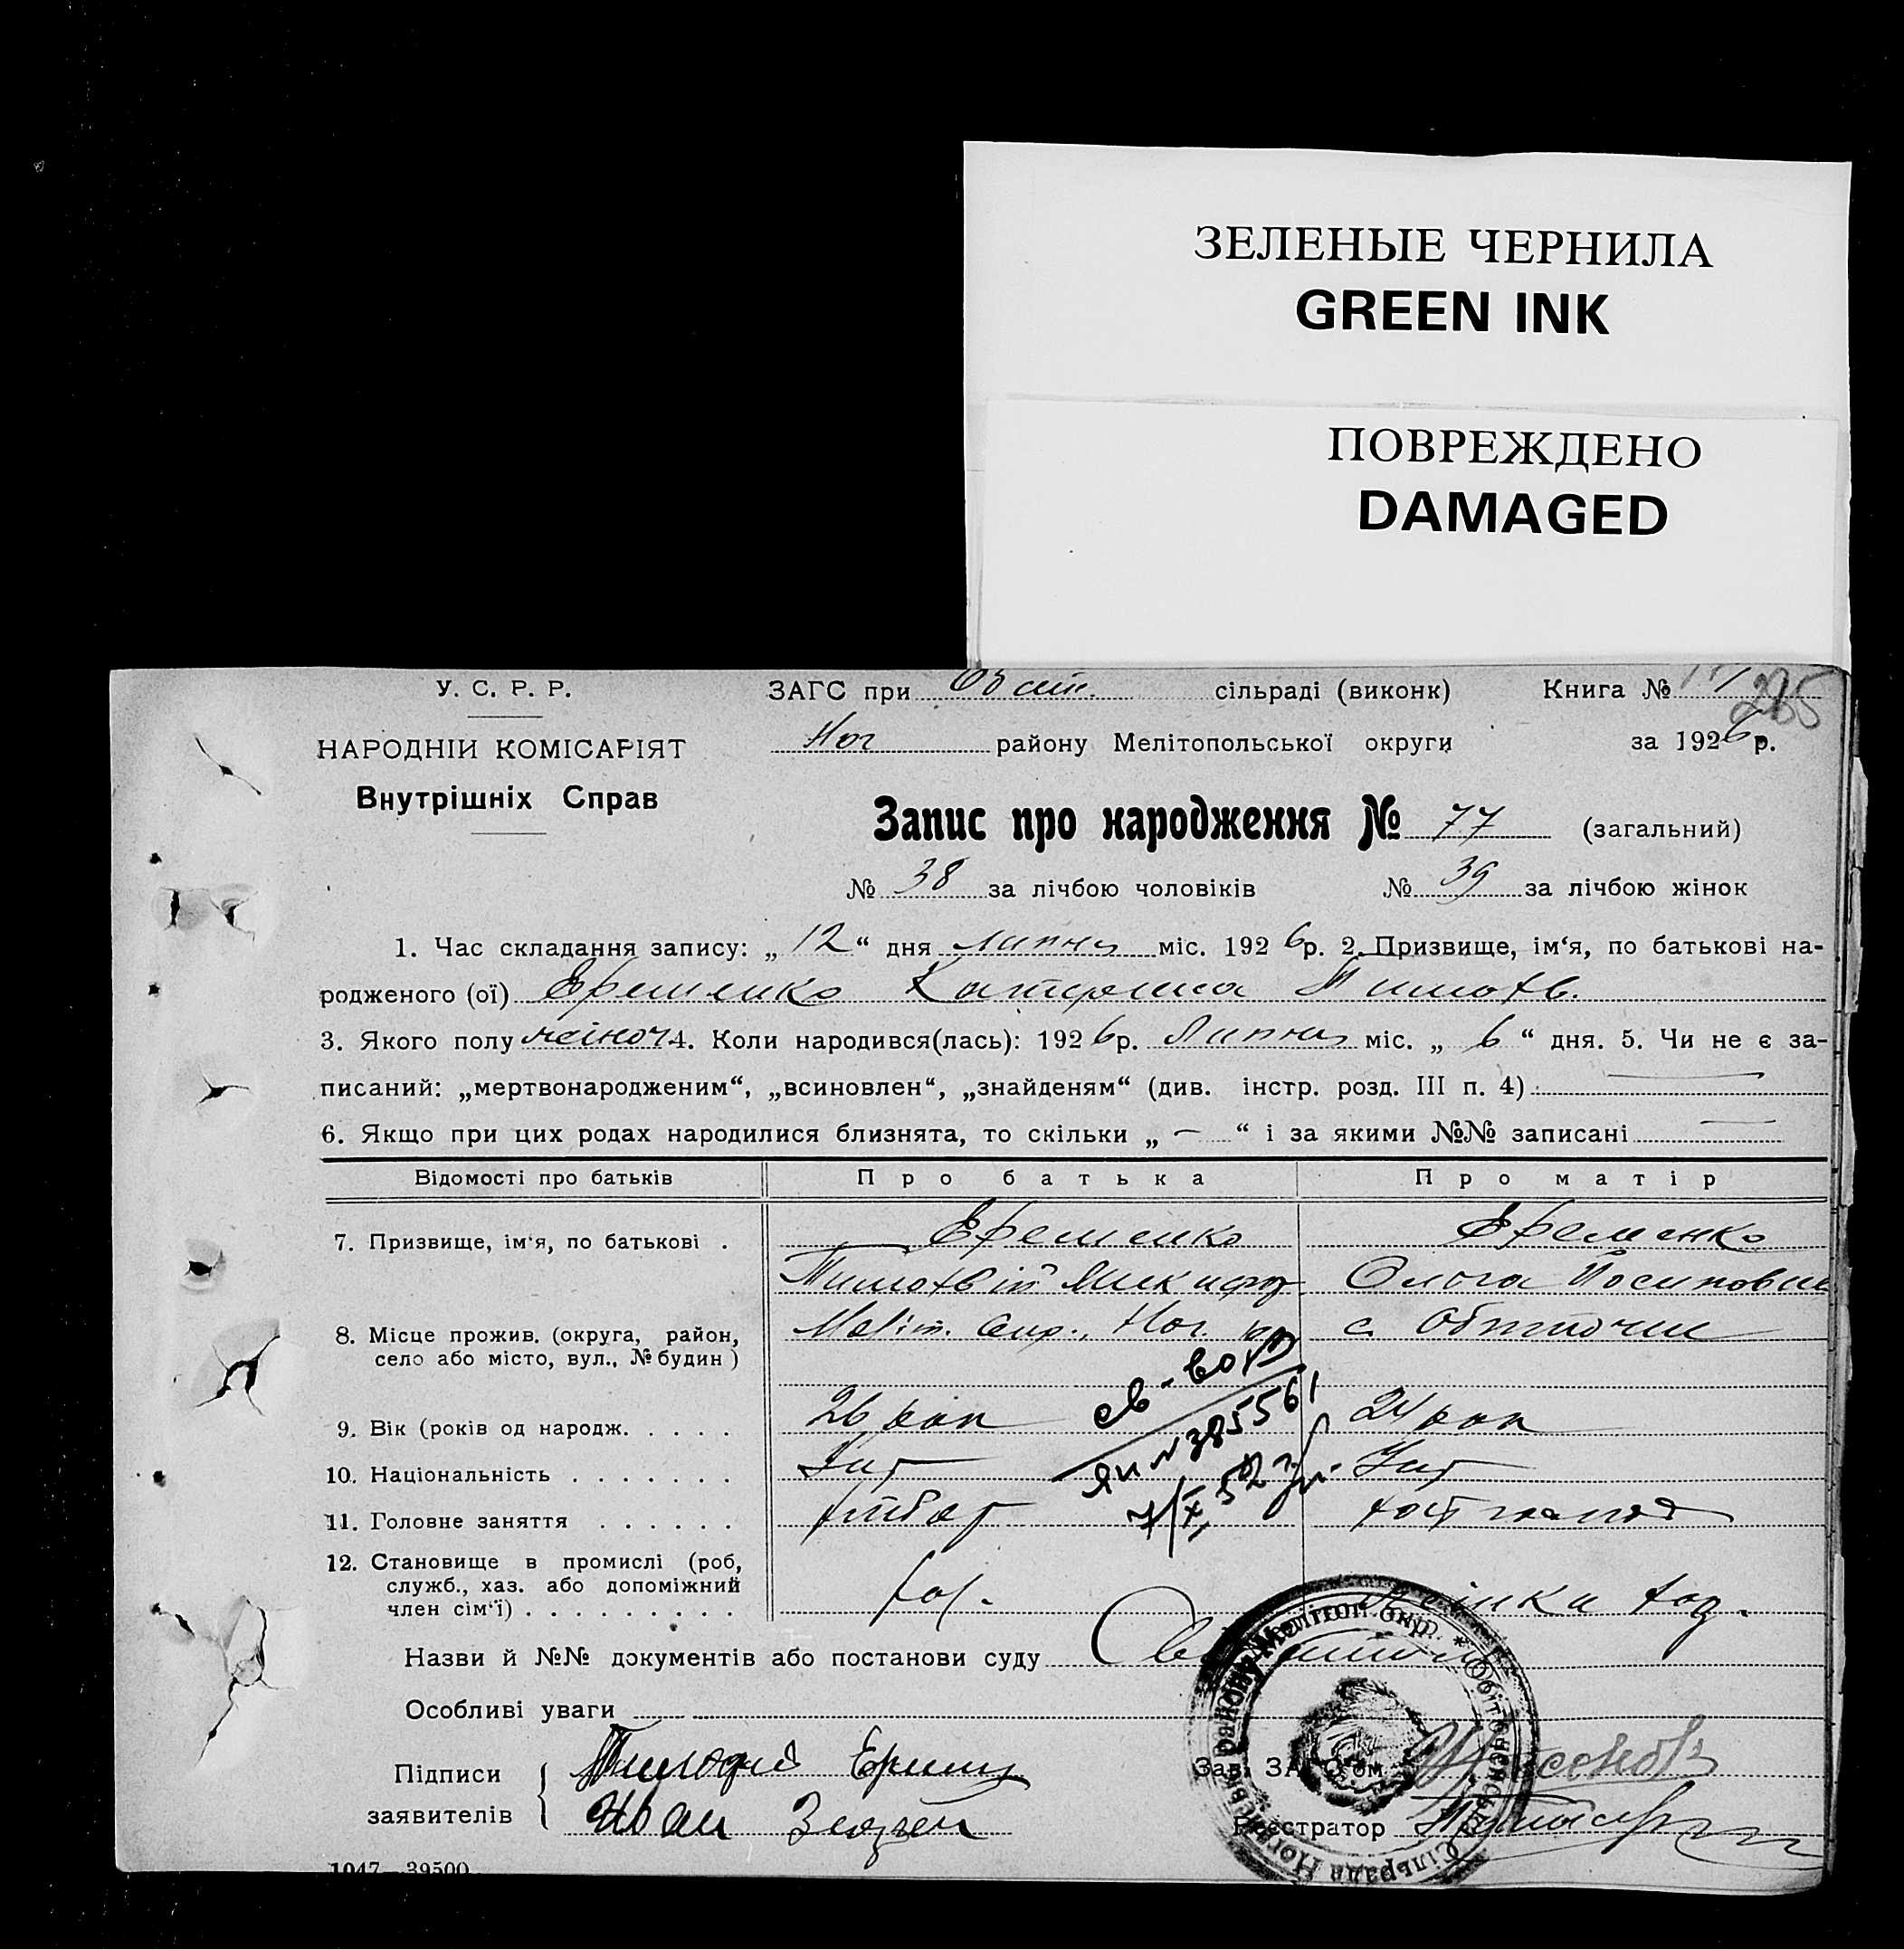 ЗЕЛЕНЫЕ ЧЕРНИЛА
GREEN INK
ПОВРЕЖДЕНО
DAMAGED
У. С. Р. Р.
ЗАГС при Об сіт. сільраді (виконк) Книга №
285
НАРОДНІЙ КОМІСАРІЯТ
Ног району Мелітопольської округи за 1926 р.
Внутрішніх Справ
Запис про народження № 77 (загальний)
№ 38 за лічбою чоловіків № 39 за лічбою жінок
1. Час складання запису: „ 12 “ дня липня міс. 1926 р. 2. Призвище, ім‘я, по батькові на-
родженого (ої) Ефеменко Катерина Тимохв.
3. Якого полу жіноч 4. Коли народився(лась): 1926 р. Липня міс. „ 6 “ дня. 5. Чи не є за-
писаний: „мертвонародженим“, „всиновлен“, „знайденям“ (див. інстр. розд. III п. 4)
6. Якщо при цих родах народилися близнята, то скільки „ — “ і за якими №№ записані —
Відомості про батьків Про батька Про матір
7. Призвище, ім‘я, по батькові . Ефеменко Ефеменко
Тимохвій Микифор Ольга Йосиповна
8. Місце прожив. (округа, район, Меліт. Окр., Ног. с. Обиточне
село або місто, вул., № будин )
св-во
9. Вік (років од народж. . . . . 26 рок 24 рок
ЯИ № 385561
10. Національність . . . . . . . Укр Укр
7/X 52 г.
11. Головне заняття . . . . . . хлібор
12. Становище в промислі (роб,
служб., хаз. або допоміжний
член сім‘ї) . . . . . . . . . хоз. жінка хоз.
Назви й №№ документів або постанови суду
Особливі уваги
Підписи Тимофей Ерем
заявителів Иван
Зав. ЗАГС‘ом
Реєстратор
Сільрада Ног району Мелітоп. Окр. * Обіточенська
1047—39500